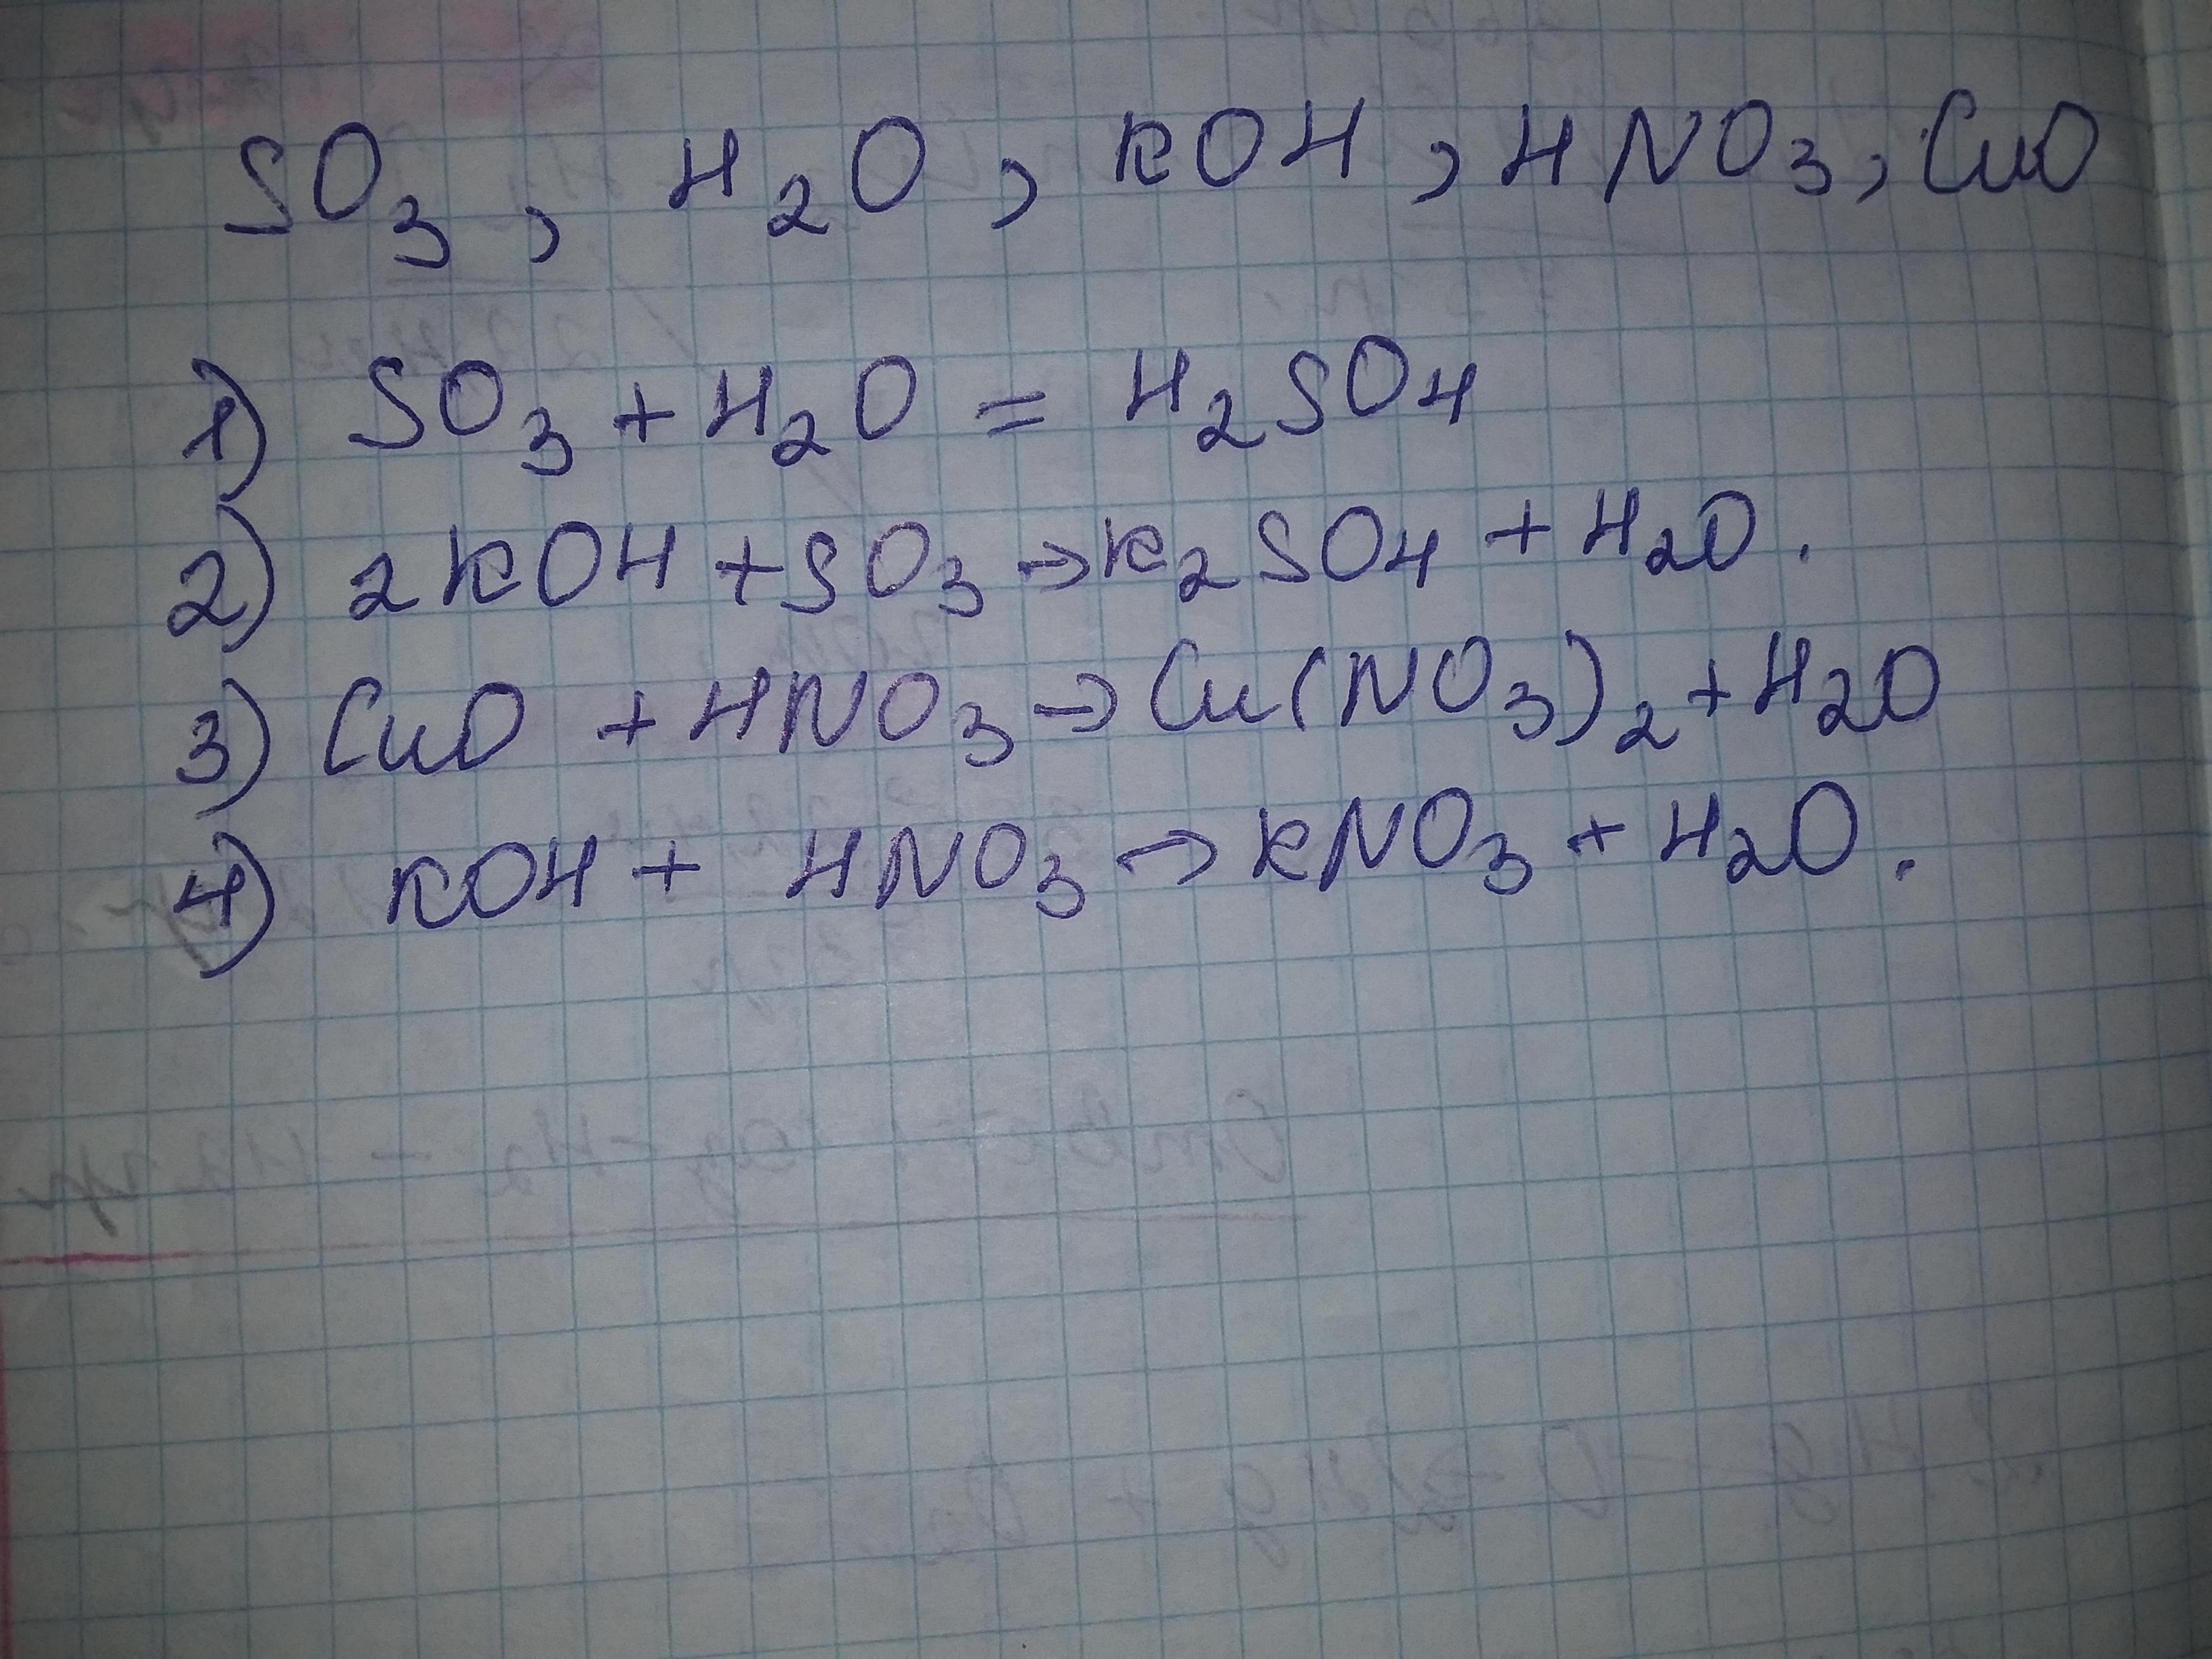 SO₃, H₂O, KOH, HNO₃, CuO
1) SO₃ + H₂O = H₂SO₄
2) 2KOH + SO₃ → K₂SO₄ + H₂O.
3) CuO + HNO₃ → Cu(NO₃)₂ + H₂O
4) KOH + HNO₃ → KNO₃ + H₂O.